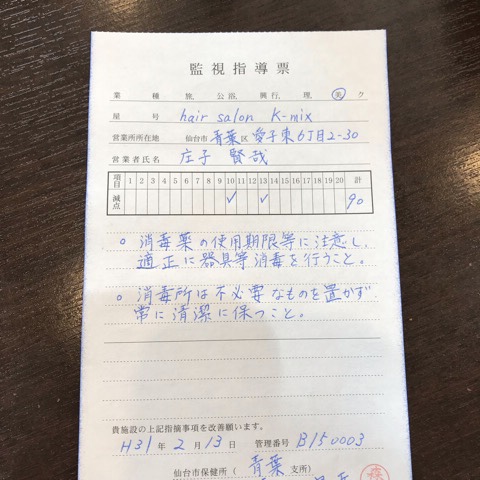 監視指導票
業 種 旅, 公, 浴, 興行, 理, 美, ク
屋 号 hair salon K-mix
営業所所在地 仙台市 青葉 区 愛子東6丁目2-30
営業者氏名 庄子 賢哉
項目 1 2 3 4 5 6 7 8 9 10 11 12 13 14 15 16 17 18 19 20 計
減点 ✓ ✓ 90
○ 消毒薬の使用期限等に注意し、
適正に器具等消毒を行うこと。
○ 消毒所は不必要なものを置かず
常に清潔に保つこと。
貴施設の上記指摘事項を改善願います。
H31 年 2 月 13 日 管理番号 B150003
仙台市保健所( 青葉 支所)